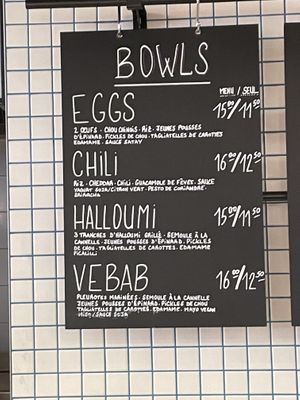 BOWLS
MENU / SEUL
EGGS 15⁰⁰/11⁵⁰
2 ŒUFS • CHOU CHINOIS • RIZ • JEUNES POUSSES
D'ÉPINARD • PICKLES DE CHOU • TAGLIATELLES DE CAROTTES
EDAMAME • SAUCE SATAY
CHiLi 16⁰⁰/12⁵⁰
RIZ • CHEDDAR • CHILI • GUACAMOLE DE FÈVES • SAUCE
YAOURT SOJA/CITRON VERT • PESTO DE CORIANDRE •
SRIRACHA
HALLOUMi 15⁰⁰/11⁵⁰
3 TRANCHES D'HALLOUMI GRILLÉ • SEMOULE À LA
CANNELLE • JEUNES POUSSES D'ÉPINARD • PICKLES
DE CHOU • TAGLIATELLES DE CAROTTES • EDAMAME
PICALILLI
VEBAB 16⁰⁰/12⁵⁰
PLEUROTES MARINÉES • SEMOULE À LA CANNELLE
JEUNES POUSSES D'ÉPINARD • PICKLES DE CHOU
TAGLIATELLES DE CAROTTES • EDAMAME • MAYO VEGAN
SAUCE SOJA